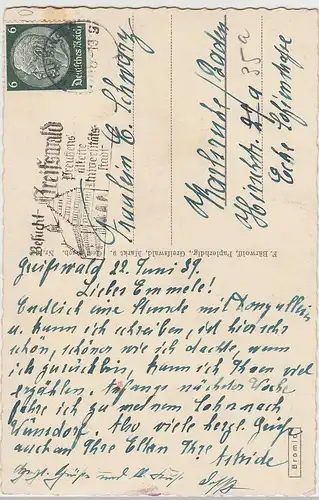 6
Deutsches Reich
6
Besucht Greifswald
Preußens
älteste
Universitäts-
stadt
Fräulein E. Schwarz
Karlsruhe/Baden
Hirschstr. 35a
Ecke Sofienstraße
F. Bärwolff, Papierhdlg., Greifswald, Markt 9.
Greifswald 22. Juni 39.
Liebes Emmele!
Endlich eine Stunde mit
u. kann ich schreiben, ist hier sehr
schön, schöner wie ich dachte, wenn
ich zurückbin, kann ich Ihnen viel
erzählen. Anfangs nächster Woche
fahre ich zu meinem Sohn nach
Wünsdorf. Also viele herzl. Grüße
auch an Ihre Eltern Ihre
Grüße
Bromid